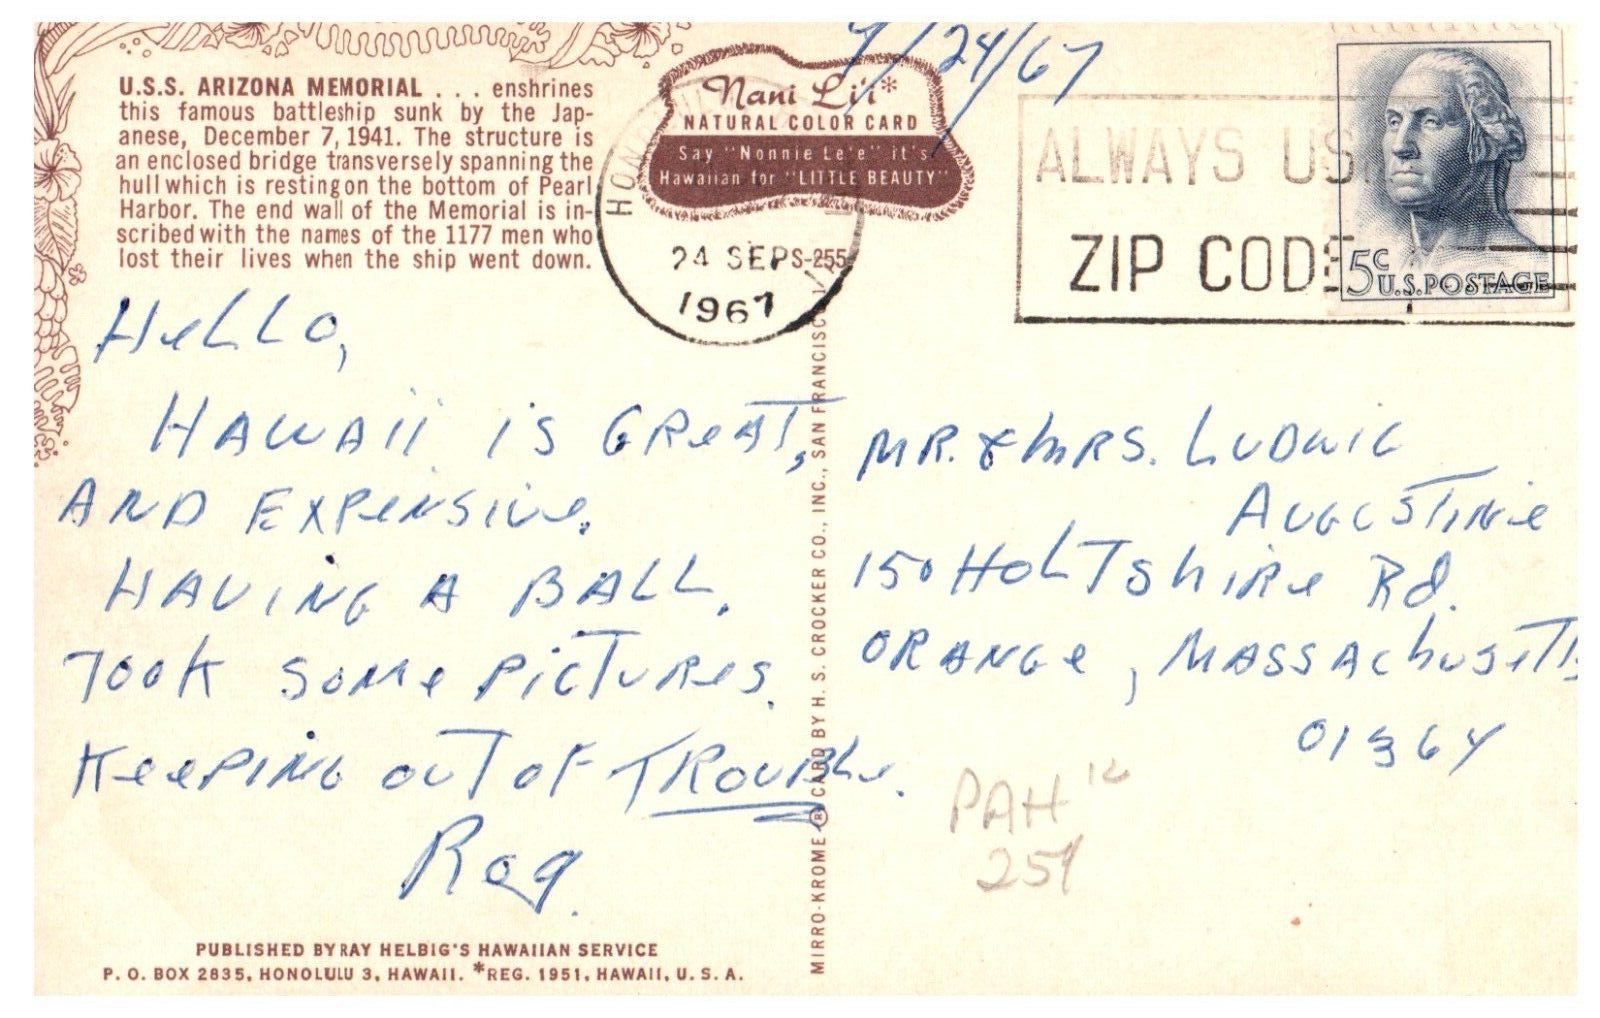 U.S.S. ARIZONA MEMORIAL . . . enshrines
this famous battleship sunk by the Jap-
anese, December 7, 1941. The structure is
an enclosed bridge transversely spanning the
hull which is resting on the bottom of Pearl
Harbor. The end wall of the Memorial is in-
scribed with the names of the 1177 men who
lost their lives when the ship went down.
Nani Li'i*
NATURAL COLOR CARD
Say "Nonnie Le'e" it's
Hawaiian for "LITTLE BEAUTY"
9/24/67
24 SEP
1967
S-255
ALWAYS US
ZIP CODE
5c
U.S. POSTAGE
Hello,
HAWAII IS GREAT,
AND EXPENSIVE.
HAVING A BALL.
TOOK SOME PICTURES.
KEEPING OUT OF TROUBLE.
Rog.
MR. & MRS. LUDWIG
AUGUSTINE
150 HOLTSHIRE Rd.
ORANGE, MASSACHUSETTS
01364
PAH 12
259
MIRRO-KROME ® CARD BY H. S. CROCKER CO., INC., SAN FRANCISCO
PUBLISHED BY RAY HELBIG'S HAWAIIAN SERVICE
P. O. BOX 2835, HONOLULU 3, HAWAII. *REG. 1951, HAWAII, U. S. A.